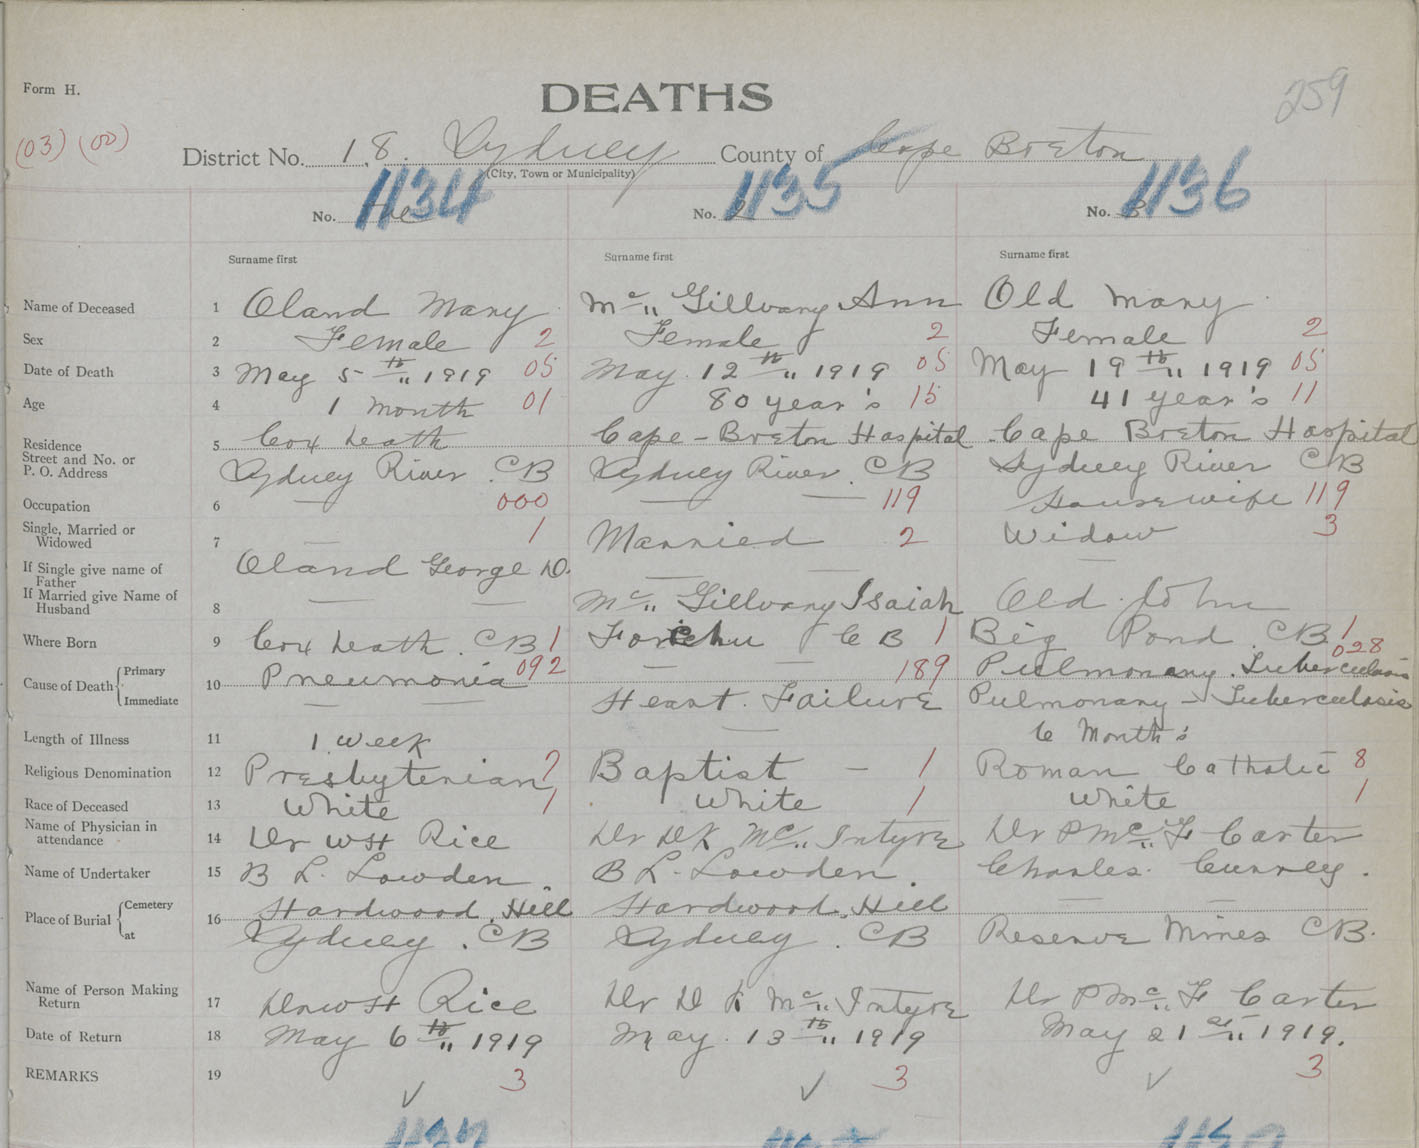 Form H.
DEATHS
259
(03) (00)
District No. 18. Sydney County of Cape Breton
(City, Town or Municipality)
1134 1135 1136
No. No. 2 No. 3
Surname first Surname first Surname first
Name of Deceased 1 Oland Mary Mc„ Gillvary Ann Old Mary
Sex 2 Female 2 Female 2 Female 2
Date of Death 3 May 5th„ 1919 05 May. 12th„ 1919 05 May 19th„ 1919 05
Age 4 1 month 01 80 year's 15 41 year's 11
Residence Cox heath Cape - Breton Hospital Cape Breton Hospital
Street and No. or 5
P. O. Address Sydney River. CB Sydney River. CB Sydney River CB
Occupation 6 — 000 — — 119 Housewife 119
Single, Married or
Widowed 7 — 1 Married 2 Widow 3
If Single give name of
Father Oland George D. — — —
If Married give Name of
Husband 8 — — Mc„ Gillvary Isaiah Old John
Where Born 9 Cox heath. CB 1 Forchu CB 1 Big Pond. CB 1
Cause of Death Primary 10 Pneumonia 092 — — 189 Pulmonary. Tuberculosis 028
Immediate — — Heart. Failure Pulmonary - Tuberculosis
Length of Illness 11 1 week — 6 Month's
Religious Denomination 12 Presbyterian 7 Baptist — 1 Roman Catholic 8
Race of Deceased 13 White 1 White 1 White 1
Name of Physician in
attendance 14 Dr WH Rice Dr DK Mc„ Intyre Dr P Mc„ F Carter
Name of Undertaker 15 B L. Lowden. B L. Lowden. Charles. Currey.
Place of Burial Cemetery 16 Hardwood. Hill Hardwood. Hill — —
at Sydney. CB Sydney. CB Reserve Mines CB.
Name of Person Making
Return 17 Dr WH Rice Dr D K Mc„ Intyre Dr P Mc„ F Carter
Date of Return 18 May 6th„ 1919 May. 13th„ 1919 May 21st„ 1919.
REMARKS 19 ✓ 3 ✓ 3 ✓ 3
1137